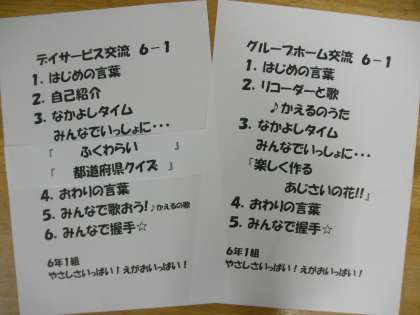 デイサービス交流 6-1
1. はじめの言葉
2. 自己紹介
3. なかよしタイム
みんなでいっしょに・・・
『 ふくわらい 』
『 都道府県クイズ 』
4. おわりの言葉
5. みんなで歌おう!♪かえるの歌
6. みんなで握手☆
6年1組
やさしさいっぱい!えがおいっぱい!
グループホーム交流 6-1
1. はじめの言葉
2. リコーダーと歌
♪かえるのうた
3. なかよしタイム
みんなでいっしょに・・・
「楽しく作る
あじさいの花!!」
4. おわりの言葉
5. みんなで握手☆
6年1組
やさしさいっぱい!えがおいっぱい!